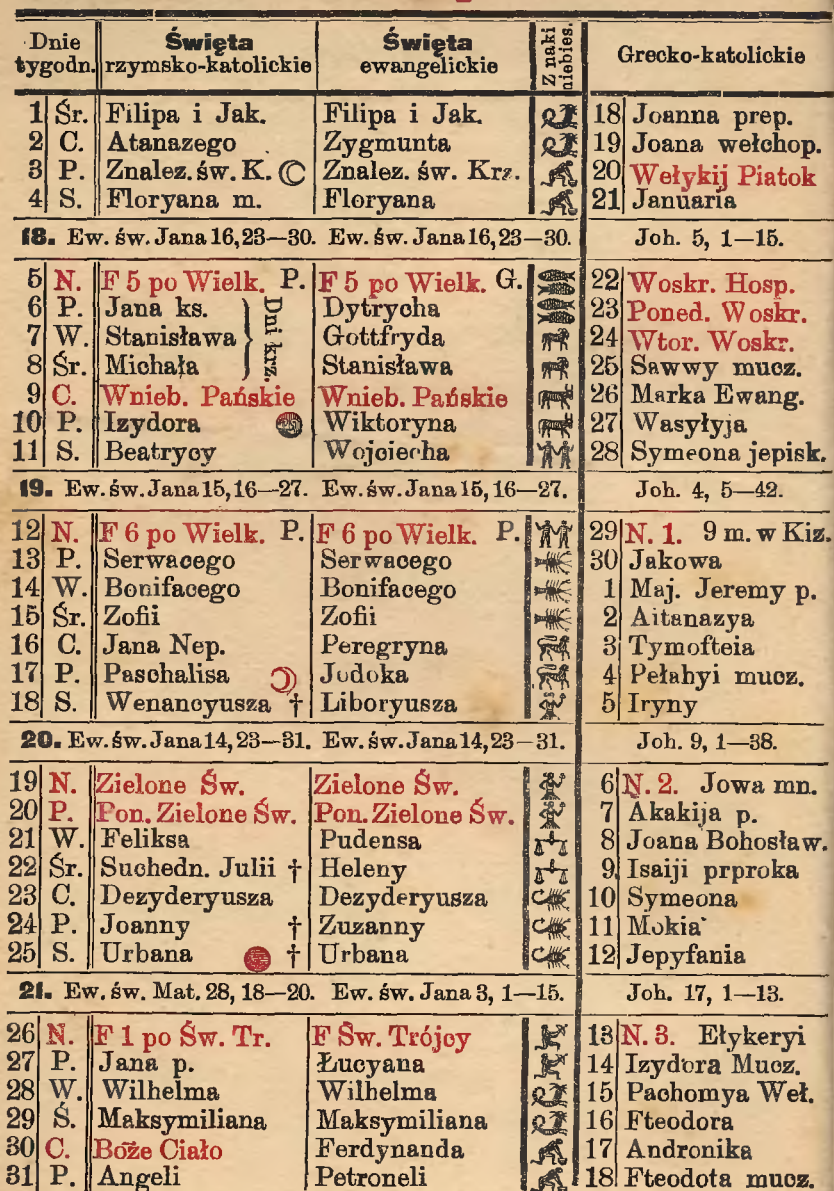 Dnie tygodn. Święta rzymsko-katolickie Święta ewangelickie Znaki niebies. Grecko-katolickie
1 Śr. Filipa i Jak. Filipa i Jak. 18 Joanna prep.
2 C. Atanazego Zygmunta 19 Joana wełchop.
3 P. Znalez. św. K. Znalez. św. Krz. 20 Wełykij Piatok
4 S. Floryana m. Floryana 21 Januaria
18. Ew. św. Jana 16, 23—30. Ew. św. Jana 16, 23—30. Joh. 5, 1—15.
5 N. F 5 po Wielk. P. F 5 po Wielk. G. 22 Woskr. Hosp.
6 P. Jana ks. Dni krz. Dytrycha 23 Poned. Woskr.
7 W. Stanisława Gottfryda 24 Wtor. Woskr.
8 Śr. Michała Stanisława 25 Sawwy mucz.
9 C. Wnieb. Pańskie Wnieb. Pańskie 26 Marka Ewang.
10 P. Izydora Wiktoryna 27 Wasyłyja
11 S. Beatrycy Wojciecha 28 Symeona jepisk.
19. Ew. św. Jana 15, 16—27. Ew. św. Jana 15, 16—27. Joh. 4, 5—42.
12 N. F 6 po Wielk. P. F 6 po Wielk. P. 29 N. 1. 9 m. w Kiz.
13 P. Serwacego Serwacego 30 Jakowa
14 W. Bonifacego Bonifacego 1 Maj. Jeremy p.
15 Śr. Zofii Zofii 2 Aitanazya
16 C. Jana Nep. Peregryna 3 Tymofteia
17 P. Paschalisa Jodoka 4 Pełahyi mucz.
18 S. Wenancyusza † Liboryusza 5 Iryny
20. Ew. św. Jana 14, 23—31. Ew. św. Jana 14, 23—31. Joh. 9, 1—38.
19 N. Zielone Św. Zielone Św. 6 N. 2. Jowa mn.
20 P. Pon. Zielone Św. Pon. Zielone Św. 7 Akakija p.
21 W. Feliksa Pudensa 8 Joana Bohosław.
22 Śr. Suchedn. Julii † Heleny 9 Isaiji prproka
23 C. Dezyderyusza Dezyderyusza 10 Symeona
24 P. Joanny † Zuzanny 11 Mokia
25 S. Urbana † Urbana 12 Jepyfania
21. Ew. św. Mat. 28, 18—20. Ew. św. Jana 3, 1—15. Joh. 17, 1—13.
26 N. F 1 po Św. Tr. F Św. Trójcy 13 N. 3. Ełykeryi
27 P. Jana p. Łucyana 14 Izydora Mucz.
28 W. Wilhelma Wilhelma 15 Pachomya Weł.
29 Ś. Maksymiliana Maksymiliana 16 Fteodora
30 C. Boże Ciało Ferdynanda 17 Andronika
31 P. Angeli Petroneli 18 Fteodota mucz.